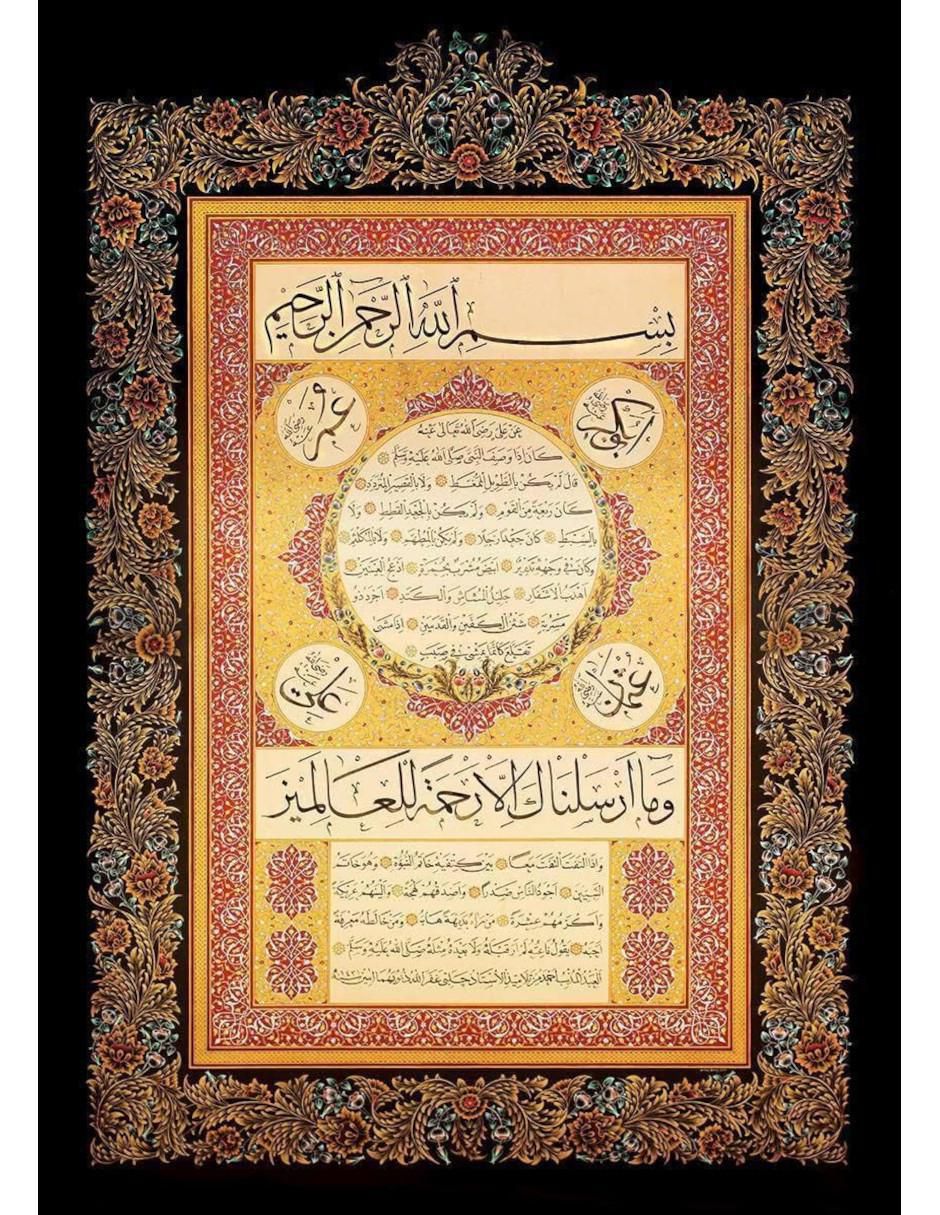 بِسْمِ ٱللَّهِ ٱلرَّحْمَٰنِ ٱلرَّحِيمِ
ابوبكر رضي الله عنه
عمر رضي الله عنه
عَنْ عَلِيٍّ رَضِيَ اللهُ تَعَالَى عَنْهُ
كَانَ اِذَا وَصَفَ النَّبِيَّ صَلَّى اللهُ عَلَيْهِ وَسَلَّمَ
قَالَ لَمْ يَكُنْ بِالطَّوِيلِ الْمُمَّغِطِ وَلَا بِالْقَصِيرِ الْمُتَرَدِّدِ
كَانَ رَبْعَةً مِنَ الْقَوْمِ وَلَمْ يَكُنْ بِالْجَعْدِ الْقَطِطِ وَلَا
بِالسَّبِطِ كَانَ جَعْدًا رَجِلًا وَلَمْ يَكُنْ بِالْمُطَهَّمِ وَلَا بِالْمُكَلْثَمِ
وَكَانَ فِي وَجْهِهِ تَدْوِيرٌ اَبْيَضُ مُشْرَبٌ بِحُمْرَةٍ اَدْعَجُ الْعَيْنَيْنِ
اَهْدَبُ الْاَشْفَارِ جَلِيلُ الْمُشَاشِ وَالْكَتَدِ اَجْرَدُ ذُو
مَسْرُبَةٍ شَثْنُ الْكَفَّيْنِ وَالْقَدَمَيْنِ اِذَا مَشَى
تَقَلَّعَ كَاَنَّمَا يَمْشِي فِي صَبَبٍ
عثمن رضي الله عنه
علي رضي الله عنه
وَمَا اَرْسَلْنَاكَ اِلَّا رَحْمَةً لِلْعَالَمِينَ
وَاِذَا الْتَفَتَ الْتَفَتَ مَعًا بَيْنَ كَتِفَيْهِ خَاتَمُ النُّبُوَّةِ وَهُوَ خَاتَمُ
النَّبِيِّينَ اَجْوَدُ النَّاسِ صَدْرًا وَاَصْدَقُهُمْ لَهْجَةً وَاَلْيَنُهُمْ عَرِيكَةً
وَاَكْرَمُهُمْ عِشْرَةً مَنْ رَآهُ بَدِيهَةً هَابَهُ وَمَنْ خَالَطَهُ مَعْرِفَةً
اَحَبَّهُ يَقُولُ نَاعِتُهُ لَمْ اَرَ قَبْلَهُ وَلَا بَعْدَهُ مِثْلَهُ صَلَّى اللهُ عَلَيْهِ وَسَلَّمَ
العبد المذنب احمد من تلاميذ الاستاذ چلبي غفر الله ذنوبهما